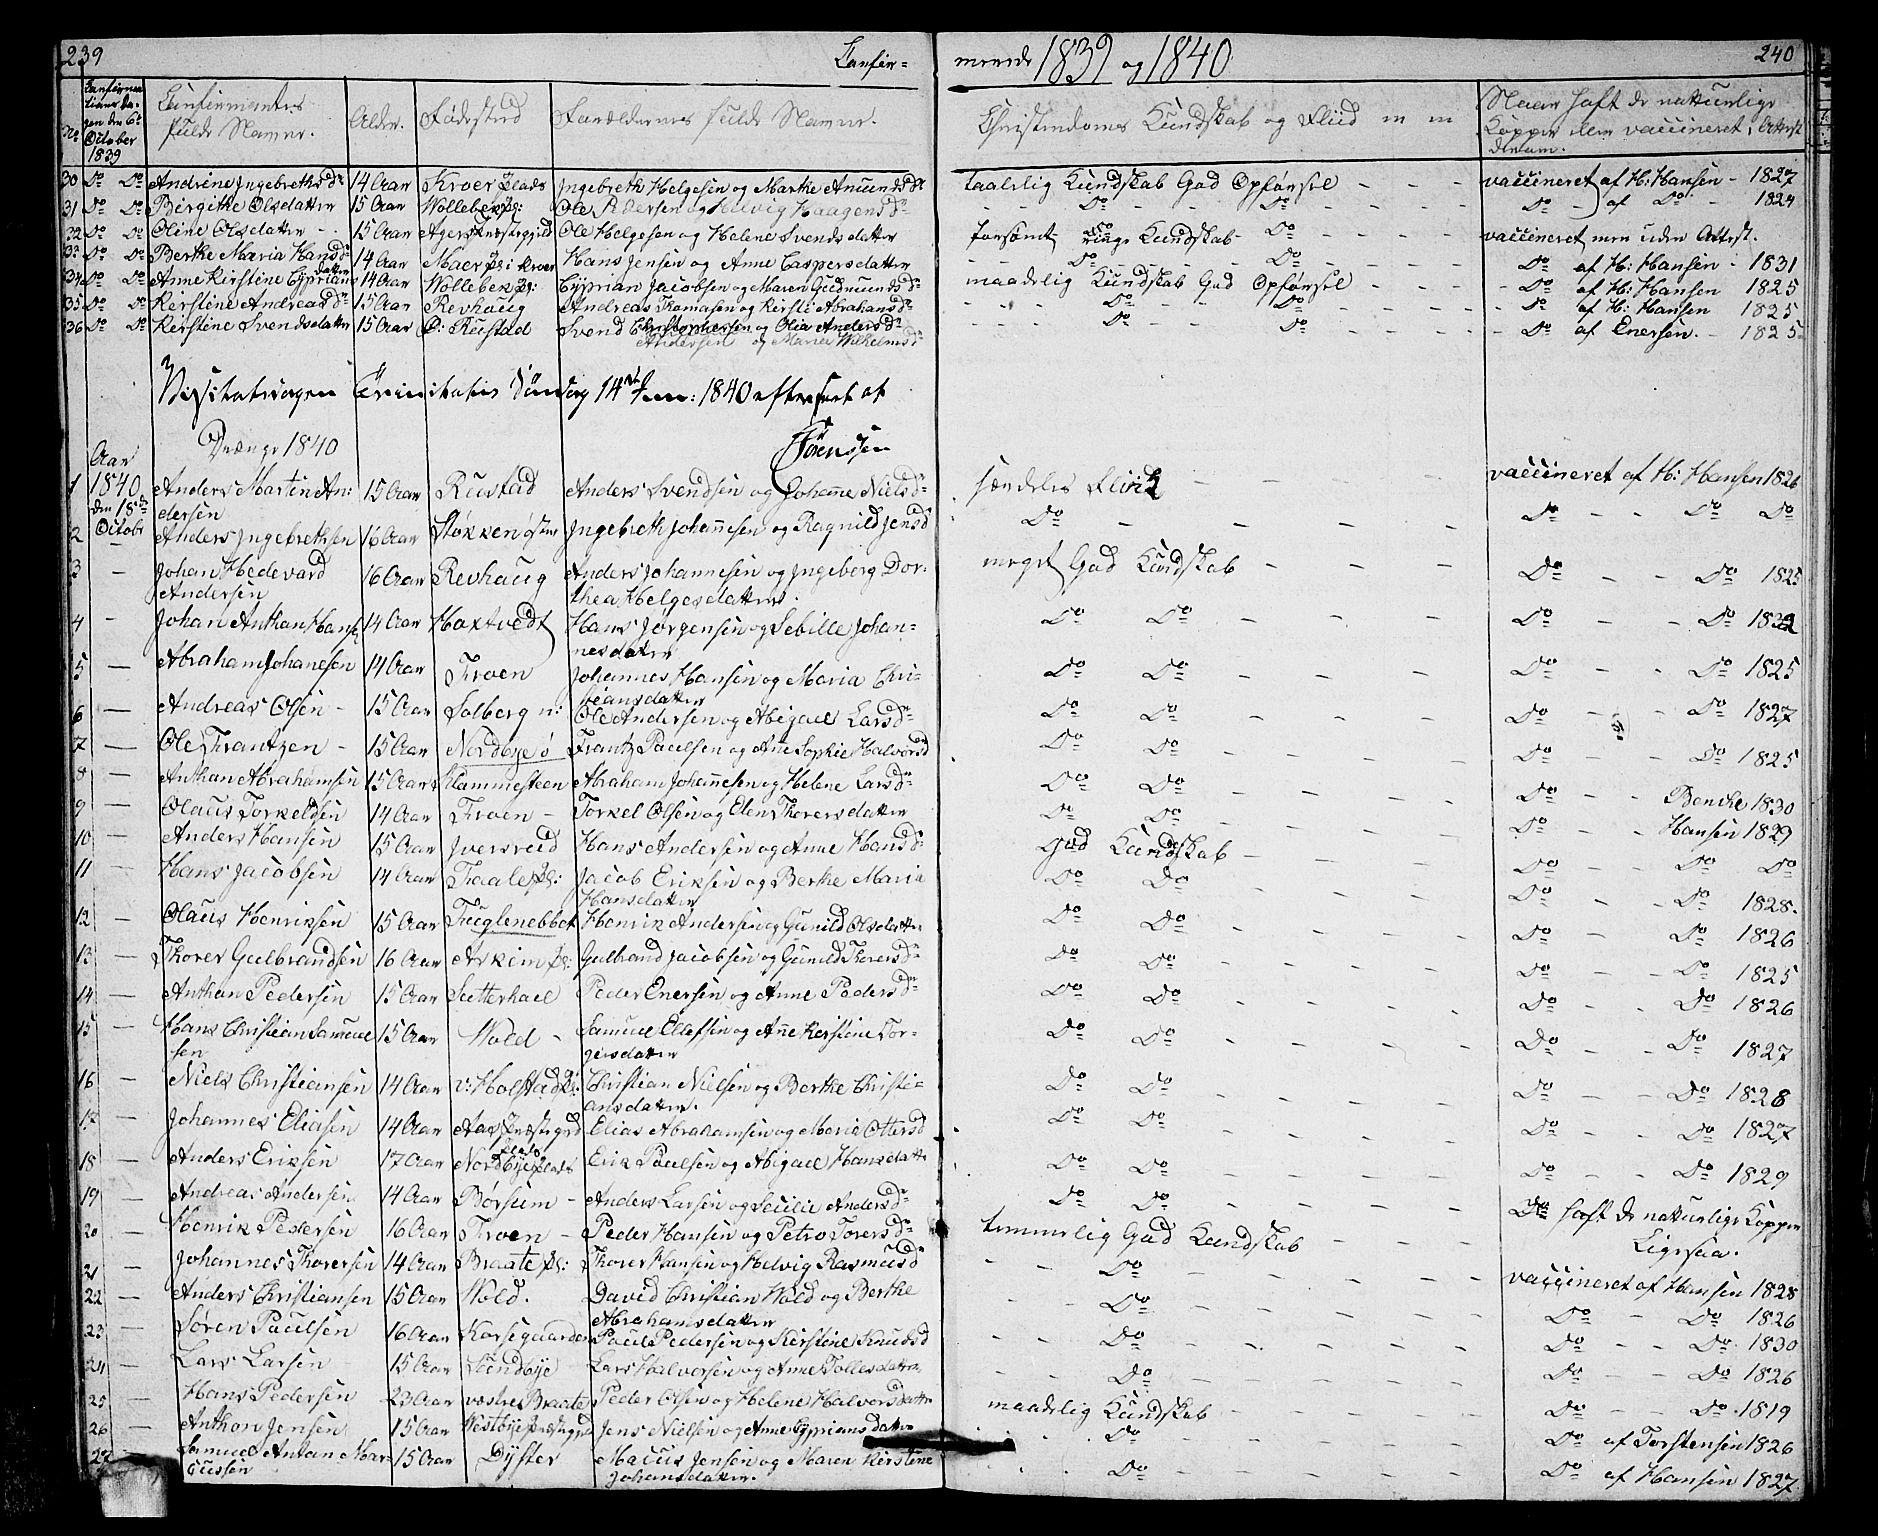 239 Confir= merede 1839 og 1840 240
No Confirmationsdagen den 6te October 1839 Confirmantes fulde Navne. Alder. Fødested Forældrenes fulde Navne. Christendoms Kundskab og Fliid Naar haft de naturlige Kopper eller vaccineret, Attest derom.
30 Do Do Andrine Ingebrethsdr 14 Aar Kroer Plads Ingebreth Helgesen og Marthe Amundsdr taalelig Kundskab God Opførsel - - - vaccineret af H: Hansen - 1827
31 Do Do Birgithe Olsdatter 15 Aar Wollebek pl: Ole Pedersen og Helvig Haagensdr - - Do - - Do - - Do - af Do - 1824
32 Do Do Oline Olsdatter - 15 Aar Agers Præstegjeld Ole Helgesen og Helene Svendsdatter forsømt ringe Kundskab - Do - - vaccineret men uden Attest.
33 Do Do Berthe Maria Hansdr 14 Aar Maer Pl: i Kroer Hans Jensen og Anne Caspersdatter - - Do - - Do - - Do af H: Hansen - 1831
34 Do Do Anne Kirstine Cypriansdatter 14 Aar Wollebek Pl: Cyprian Jacobsen og Maren Gudmundsdr maadelig Kundskab God Opførsel - - - Do af H: Hansen 1825
35 Do Do Kerstine Andreasdr 15 Aar Revhaug Andreas Thomasen og Kirstie Abrahamsdr - - Do - - Do - - Do af H: Hansen 1825
36 Do Do Kerstine Svendsdatter 15 Aar Rustad Svend Christophersen og Olia Andersdr - - Do - - Do - - Do af Enersen. - 1825
Andersen og Maria Wilhelmsdr
Visitatsdagen Trinitatis Søndag 14de Jun: 1840 efterseet af
Sørenssen
Drenge 1840
1 Aar 1840 den 18de Octobr Anders Martin Andersen 15 Aar Rustad Anders Svendsen og Johanne Nielsdr særdeles Fliid - - - vaccineret af H: Hansen 1826
2 — Anders Ingebrethsen 16 Aar Støkken østre Ingebreth Johannesen og Ragnild Jensd Do - - - - Do - - Do Do
3 — Johan Hedevard Andersen 16 Aar Revhaug Anders Johannesen og Ingeborg Dorthea Helgesdatter. meget God Kundskab - - - Do - - Do 1825
4 — Johan Anthon Hansen 14 Aar Haxtvedt Hans Jørgensen og Sebille Johannesdatter Do Do - - - Do - - Do 1832
5 — Abraham Johanesen 14 Aar Froen Johannes Hansen og Maria Christiansdatter Do Do - - - Do - - Do 1825
6 — Andreas Olsen - 15 Aar Solberg n: Ole Andersen og Abigael Larsdr Do Do - - - Do - - Do 1827
7 — Ole Frantzen - 15 Aar Nordbye ø Frantz Paulsen og Ane Sophie Halvorsd Do Do - - - Do - - Do 1825
8 — Anthon Abrahamsen 15 Aar Klammesteen Abraham Johannesen og Helene Larsdr Do Do - - - Do - - Benche 1830
9 — Olaus Torkeldsen 14 Aar Froen - Torkel Olsen og Elen Thorersdatter Do Do - - - Do - - Hansen 1829
10 — Anders Hansen 15 Aar Iversrud Hans Andersen og Anne Hansdr God Kundskab - - - Do - - Do Do
11 — Hans Jacobsen 14 Aar Faale pl: Jacob Eriksen og Berthe Maria Hansdatter Do Do - - - Do - - Do 1828.
12 — Olaus Henriksen 15 Aar Fuglenebbet Henrik Andersen og Gunild Olsdatter Do Do - - - Do - - Do 1826
13 — Thorer Gulbrandsen 16 Aar Askim pl: Gulbrand Jacobsen og Gunild Thorersdr Do Do - - - Do - - Do 1825
14 — Anthon Pedersen 15 Aar Peder Enersen og Anne Pedersdr Do Do - - - Do - - Do 1826
15 — Hans Christian Samuelsen 15 Aar Wold - Samuel Ellefsen og Ane Kerstine Torgersdatter Do Do - - - Do - - Do 1827
16 — Niels Christiansen 14 Aar v: Holstad pl: Christian Nielsen og Berthe Christiansdatter. Do Do - - - Do - - Do 1828
17 — Johannes Eliasen 14 Aar Aas Præstegjeld Elias Abrahamsen og Marie Ottersd Do Do - - - Do - - Do 1827
18 — Anders Eriksen 17 Aar Nordbye plads Erik Paulsen og Abigael Hansdatter Do Do - - - Do - - Do 1829
19 — Andreas Andersen 14 Aar Børsum - Anders Larsen og Secilie Andersdr Do Do - - - Do haft de naturlige Kopper
20 — Henrik Pedersen 16 Aar Froen - Peder Hansen og Petro Torersdr temmelig God Kundskab - - - Ligesaa.
21 — Johannes Thorersen 14 Aar Braate pl: Thorer Hansen og Helvig Rasmusd - - Do - - - vaccineret af Hansen 1828
22 — Anders Christiansen 15 Aar Wold. David Christian Wold og Berthe Abrahamsdatter - - Do - - - Do - Do 1826
23 — Søren Paulsen 16 Aar Korsegaarden Paul Pedersen og Kirstine Knudsd - - Do - - - Do - - Do 1830
24 — Lars Larsen 15 Aar Sundbye Lars Halvorsen og Anne Tollesdatter - - Do - - - Do - - Do 1826
25 — Hans Pedersen 23 Aar vestre Braate Peder Olsen og Helene Halvorsdatter maadelig Kundskab - - - Do - - Do 1819
26 — Anthon Jensen 15 Aar Westbye Præstegjeld Jens Nielsen og Anne Cypriansdatter - - Do - - - Do af Torstensen 1826
27 Samuel Anton Marcussen 15 Aar Dyster Macus Jensen og Maren Kirstine Johansdatter. - - Do - - - Do af Hansen 1827